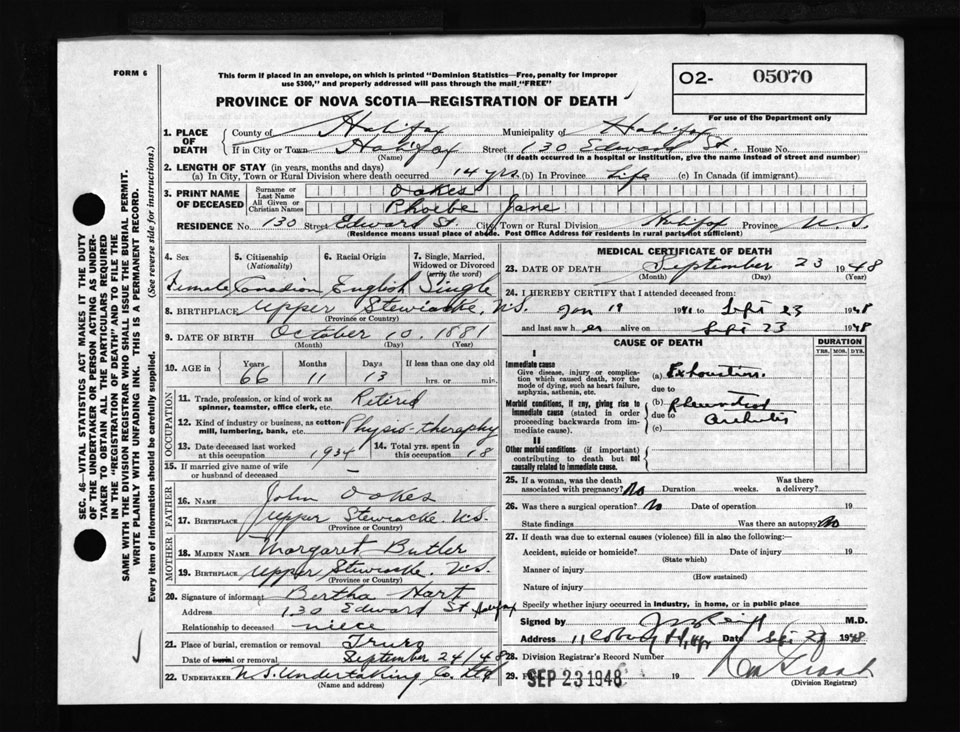 FORM 6
This form if placed in an envelope, on which is printed "Dominion Statistics—Free, penalty for improper
use $300," and properly addressed will pass through the mail "FREE"
O2- 05070
For use of the Department only
PROVINCE OF NOVA SCOTIA—REGISTRATION OF DEATH
1. PLACE OF DEATH { County of Halifax Municipality of Halifax
If in City or Town Halifax Street 130 Edward St. House No.
(Name) (If death occurred in a hospital or institution, give the name instead of street and number)
2. LENGTH OF STAY (in years, months and days)
(a) In City, Town or Rural Division where death occurred 14 yrs. (b) In Province Life (c) In Canada (if immigrant)
3. PRINT NAME OF DECEASED { Surname or Last Name Oakes
All Given or Christian Names Phoebe Jane
RESIDENCE No. 130 Street Edward St. City, Town or Rural Division Halifax Province N.S.
(Residence means usual place of abode. Post Office Address for residents in rural parts not sufficient)
4. Sex 5. Citizenship (Nationality) 6. Racial Origin 7. Single, Married, Widowed or Divorced (write the word)
Female Canadian English Single
8. BIRTHPLACE Upper Stewiacke, N.S.
(Province or Country)
9. DATE OF BIRTH October 10, 1881
(Month) (Day) (Year)
10. AGE in Years Months Days If less than one day old
66 11 13 hrs. or min.
OCCUPATION
11. Trade, profession, or kind of work as spinner, teamster, office clerk, etc. Retired
12. Kind of industry or business, as cotton-mill, lumbering, bank, etc. Physio-theraphy
13. Date deceased last worked at this occupation 1934 14. Total yrs. spent in this occupation 18
15. If married give name of wife or husband of deceased —
FATHER
16. NAME John Oakes
17. BIRTHPLACE Upper Stewiacke. N.S.
(Province or Country)
MOTHER
18. MAIDEN NAME Margaret Butler
19. BIRTHPLACE Upper Stewiacke. N.S.
(Province or Country)
20. Signature of informant Bertha Hart
Address 130 Edward St Halifax
Relationship to deceased niece
21. Place of burial, cremation or removal Truro
Date of burial or removal September 24/48
22. UNDERTAKER N.S. Undertaking Co. Ltd
(Name and address)
MEDICAL CERTIFICATE OF DEATH
23. DATE OF DEATH September 23 1948
(Month) (Day) (Year)
24. I HEREBY CERTIFY that I attended deceased from:
Jan 19 to Sept 23 1948
and last saw her alive on Sept 23 1948
CAUSE OF DEATH DURATION
YRS. MOS. DYS.
I
Immediate cause
Give disease, injury or complication which caused death, NOT the mode of dying, such as heart failure, asphyxia, asthenia, etc.
(a) Exhaustion.
due to
Morbid conditions, if any, giving rise to immediate cause (stated in order proceeding backwards from immediate cause)
(b) Rheumatoid
due to Arthritis
(c)
II
Other morbid conditions (if important) contributing to death but not causally related to immediate cause.
25. If a woman, was the death associated with pregnancy? No Duration weeks. Was there a delivery?
26. Was there a surgical operation? No Date of operation 19
State findings Was there an autopsy No
27. If death was due to external causes (violence) fill in also the following:
Accident, suicide or homicide? Date of injury 19
(State which)
Manner of injury
(How sustained)
Nature of injury
Specify whether injury occurred in industry, in home, or in public place
Signed by M.D.
Address Date 1948
28. Division Registrar's Record Number
29. SEP 23 1948 19
(Division Registrar)
SEC. 46—VITAL STATISTICS ACT MAKES IT THE DUTY
OF THE UNDERTAKER OR PERSON ACTING AS UNDER-
TAKER TO OBTAIN ALL THE PARTICULARS REQUIRED
IN THE "REGISTRATION OF DEATH" AND TO FILE THE
SAME WITH THE DIVISION REGISTRAR WHO SHALL ISSUE THE BURIAL PERMIT.
WRITE PLAINLY WITH UNFADING INK. THIS IS A PERMANENT RECORD.
Every item of information should be carefully supplied. (See reverse side for instructions.)